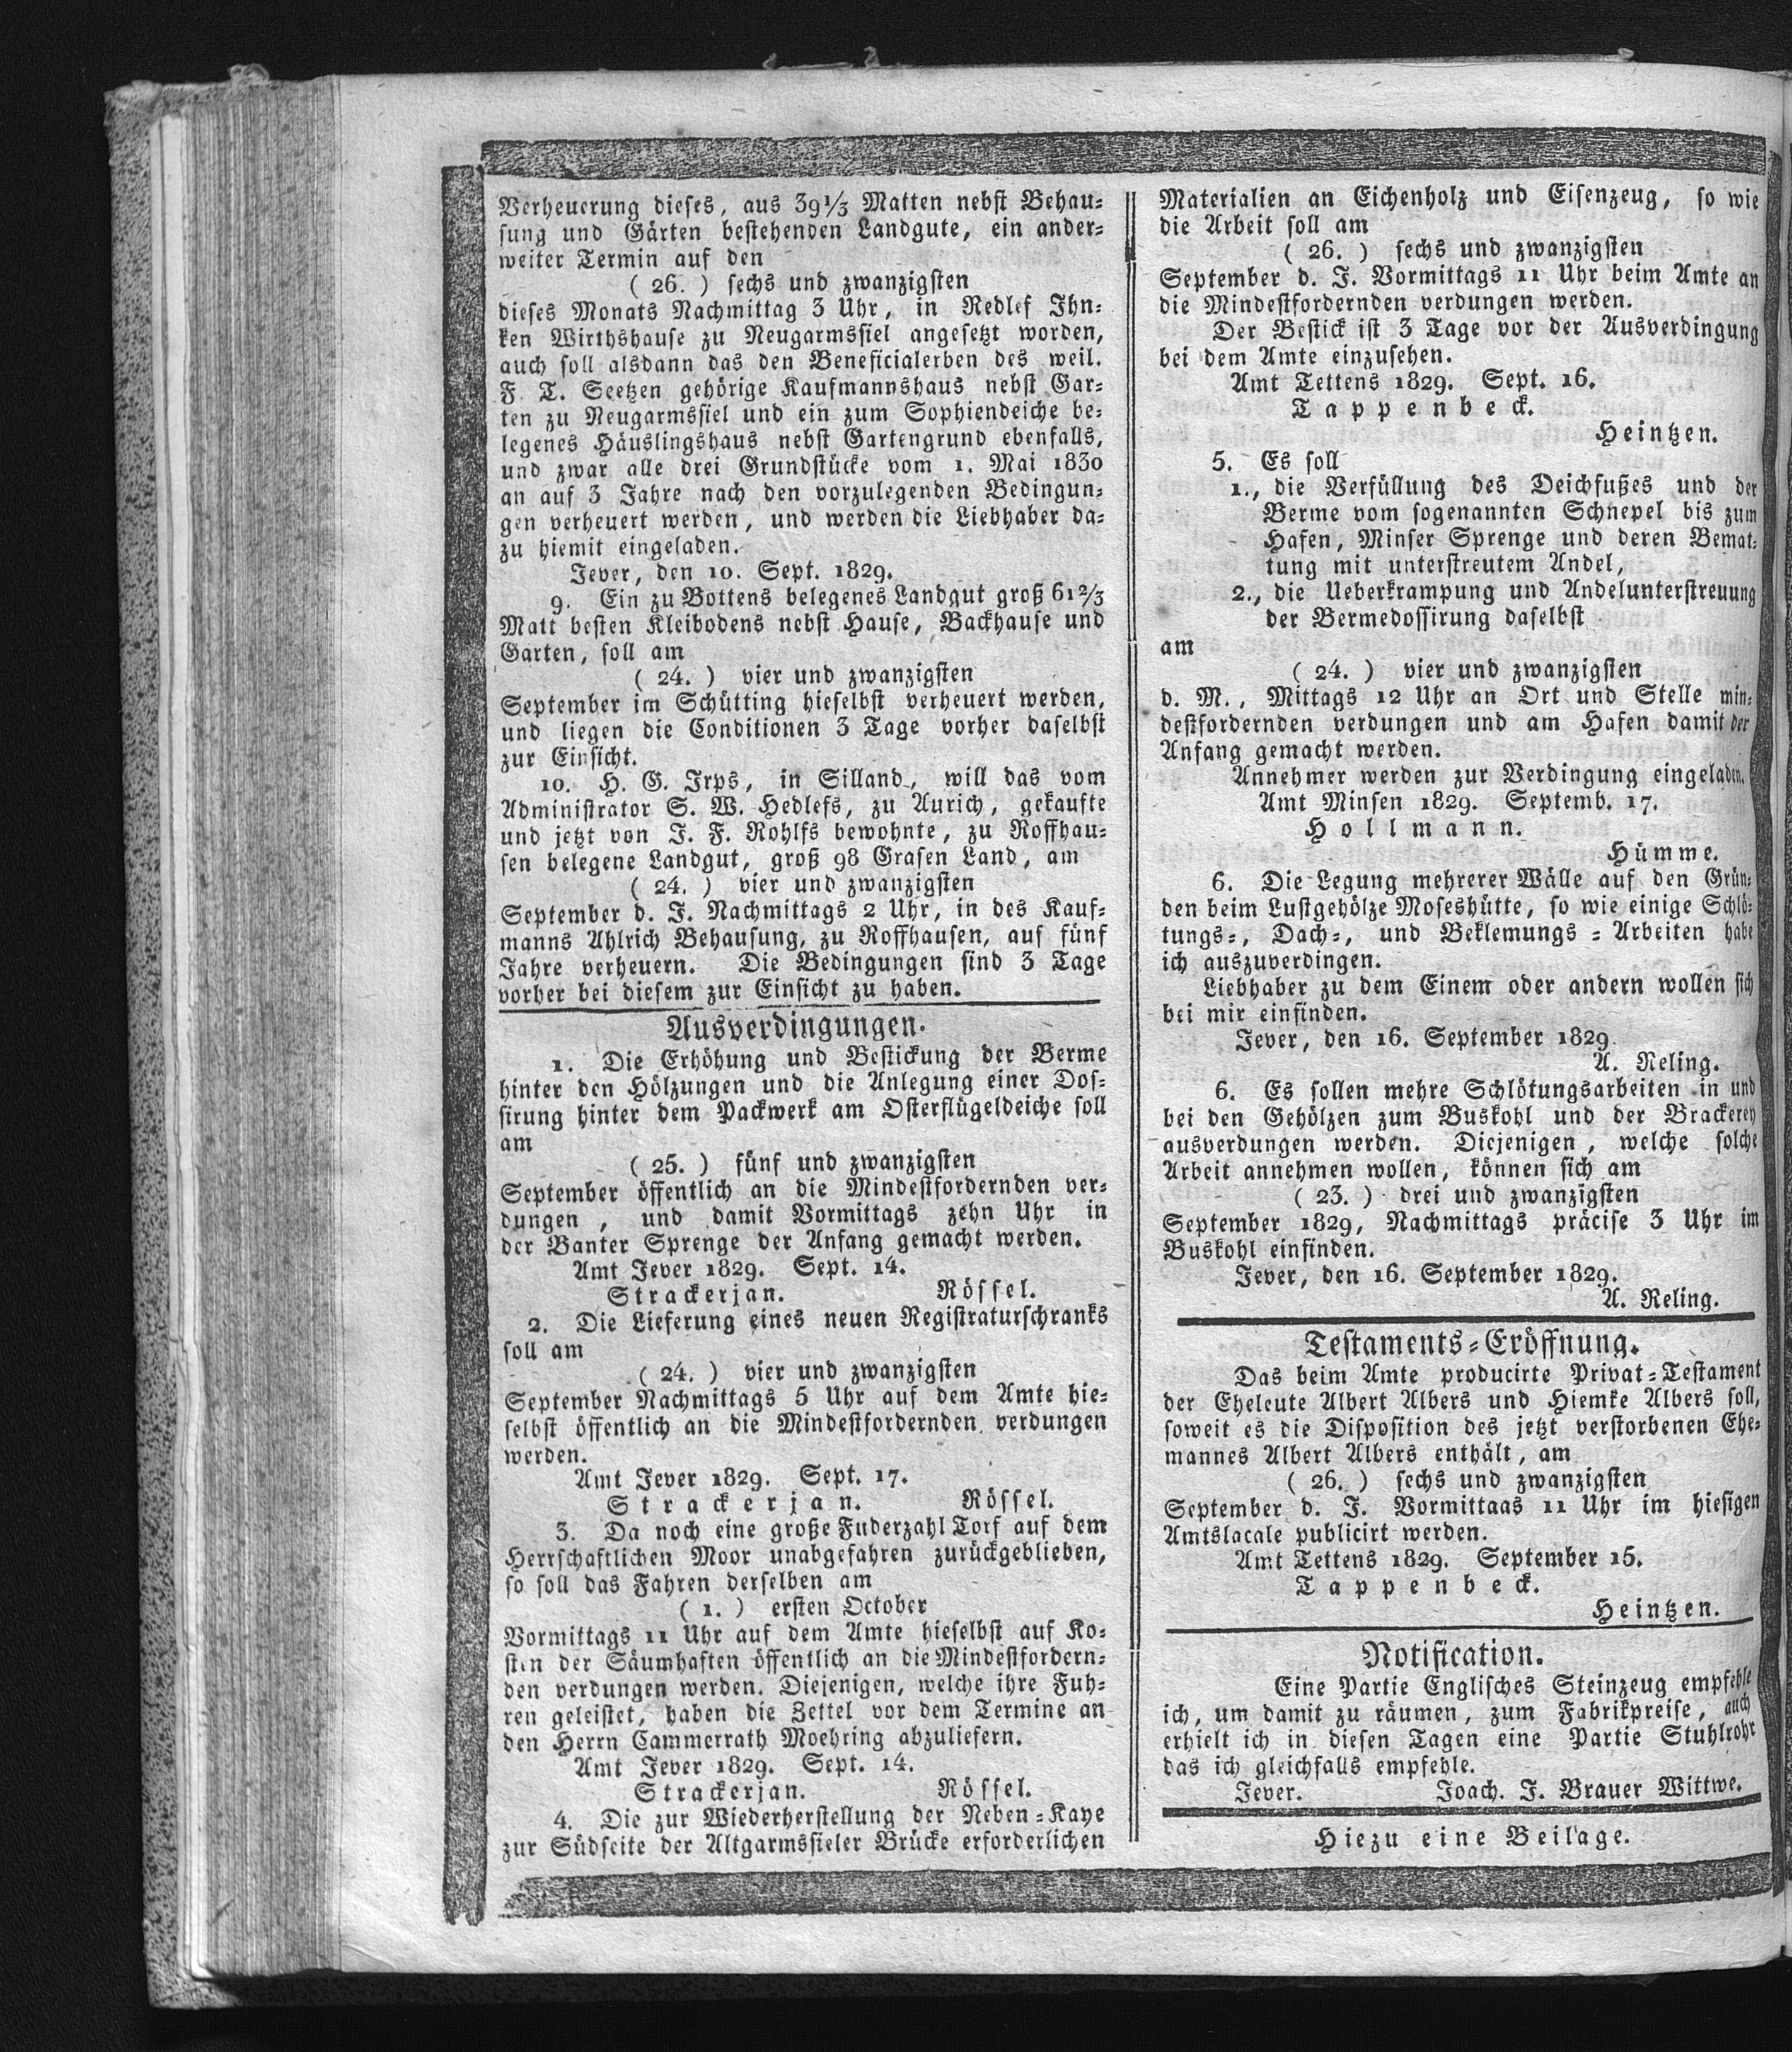 Verheuerung dieses, aus 39⅓ Matten nebst Behau-
sung und Gärten bestehenden Landgute, ein ander-
weiter Termin auf den
( 26. ) sechs und zwanzigsten
dieses Monats Nachmittag 3 Uhr, in Redlef Ihn-
ken Wirthshause zu Neugarmssiel angesetzt worden,
auch soll alsdann das den Beneficialerben des weil.
F. T. Seetzen gehörige Kaufmannshaus nebst Gar-
ten zu Neugarmssiel und ein zum Sophiendeiche be-
legenes Häuslingshaus nebst Gartengrund ebenfalls,
und zwar alle drei Grundstücke vom 1. Mai 1830
an auf 3 Jahre nach den vorzulegenden Bedingun-
gen verheuert werden, und werden die Liebhaber da-
zu hiemit eingeladen.
Jever, den 10. Sept. 1829.
9. Ein zu Bottens belegenes Landgut groß 61⅔
Matt besten Kleibodens nebst Hause, Backhause und
Garten, soll am
( 24. ) vier und zwanzigsten
September im Schütting hieselbst verheuert werden,
und liegen die Conditionen 3 Tage vorher daselbst
zur Einsicht.
10. H. G. Irps, in Silland, will das vom
Administrator S. W. Hedlefs, zu Aurich, gekaufte
und jetzt von J. F. Rohlfs bewohnte, zu Roffhau-
sen belegene Landgut, groß 98 Grasen Land, am
( 24. ) vier und zwanzigsten
September d. J. Nachmittags 2 Uhr, in des Kauf-
manns Ahlrich Behausung, zu Roffhausen, auf fünf
Jahre verheuern. Die Bedingungen sind 3 Tage
vorher bei diesem zur Einsicht zu haben.
Ausverdingungen.
1. Die Erhöhung und Bestickung der Berme
hinter den Hölzungen und die Anlegung einer Dos-
sirung hinter dem Packwerk am Osterflügeldeiche soll
am
( 25. ) fünf und zwanzigsten
September öffentlich an die Mindestfordernden ver-
dungen , und damit Vormittags zehn Uhr in
der Banter Sprenge der Anfang gemacht werden.
Amt Jever 1829. Sept. 14.
Strackerjan. Rössel.
2. Die Lieferung eines neuen Registraturschranks
soll am
( 24. ) vier und zwanzigsten
September Nachmittags 5 Uhr auf dem Amte hie-
selbst öffentlich an die Mindestfordernden verdungen
werden.
Amt Jever 1829. Sept. 17.
Strackerjan. Rössel.
3. Da noch eine große Fuderzahl Torf auf dem
Herrschaftlichen Moor unabgefahren zurückgeblieben,
so soll das Fahren derselben am
( 1. ) ersten October
Vormittags 11 Uhr auf dem Amte hieselbst auf Ko-
sten der Säumhaften öffentlich an die Mindestfordern-
den verdungen werden. Diejenigen, welche ihre Fuh-
ren geleistet, haben die Zettel vor dem Termine an
den Herrn Cammerrath Moehring abzuliefern.
Amt Jever 1829. Sept. 14.
Strackerjan. Rössel.
4. Die zur Wiederherstellung der Neben-Kaye
zur Südseite der Altgarmssieler Brücke erforderlichen
Materialien an Eichenholz und Eisenzeug, so wie
die Arbeit soll am
( 26. ) sechs und zwanzigsten
September d. J. Vormittags 11 Uhr beim Amte an
die Mindestfordernden verdungen werden.
Der Bestick ist 3 Tage vor der Ausverdingung
bei dem Amte einzusehen.
Amt Tettens 1829. Sept. 16.
Tappenbeck.
Heintzen.
5. Es soll
1., die Verfüllung des Deichfußes und der
Berme vom sogenannten Schnepel bis zum
Hafen, Minser Sprenge und deren Bemat-
tung mit unterstreutem Andel,
2., die Ueberkrampung und Andelunterstreuung
der Bermedossirung daselbst
am
( 24. ) vier und zwanzigsten
d. M., Mittags 12 Uhr an Ort und Stelle min-
destfordernden verdungen und am Hafen damit der
Anfang gemacht werden.
Annehmer werden zur Verdingung eingeladen.
Amt Minsen 1829. Septemb. 17.
Hollmann.
Hümme.
6. Die Legung mehrerer Wälle auf den Grün-
den beim Lustgehölze Moseshütte, so wie einige Schlö-
tungs-, Dach-, und Beklemungs-Arbeiten habe
ich auszuverdingen.
Liebhaber zu dem Einem oder andern wollen sich
bei mir einfinden.
Jever, den 16. September 1829.
A. Reling.
6. Es sollen mehre Schlötungsarbeiten in und
bei den Gehölzen zum Buskohl und der Brackerey
ausverdungen werden. Diejenigen, welche solche
Arbeit annehmen wollen, können sich am
( 23. ) drei und zwanzigsten
September 1829, Nachmittags präcise 3 Uhr im
Buskohl einfinden.
Jever, den 16. September 1829.
A. Reling.
Testaments-Eröffnung.
Das beim Amte producirte Privat-Testament
der Eheleute Albert Albers und Hiemke Albers soll,
soweit es die Disposition des jetzt verstorbenen Ehe-
mannes Albert Albers enthält, am
( 26. ) sechs und zwanzigsten
September d. J. Vormittaas 11 Uhr im hiesigen
Amtslacale publicirt werden.
Amt Tettens 1829. September 15.
Tappenbeck.
Heintzen.
Notification.
Eine Partie Englisches Steinzeug empfehle
ich, um damit zu räumen, zum Fabrikpreise, auch
erhielt ich in diesen Tagen eine Partie Stuhlrohr
das ich gleichfalls empfehle.
Jever. Joach. J. Brauer Wittwe.
Hiezu eine Beilage.